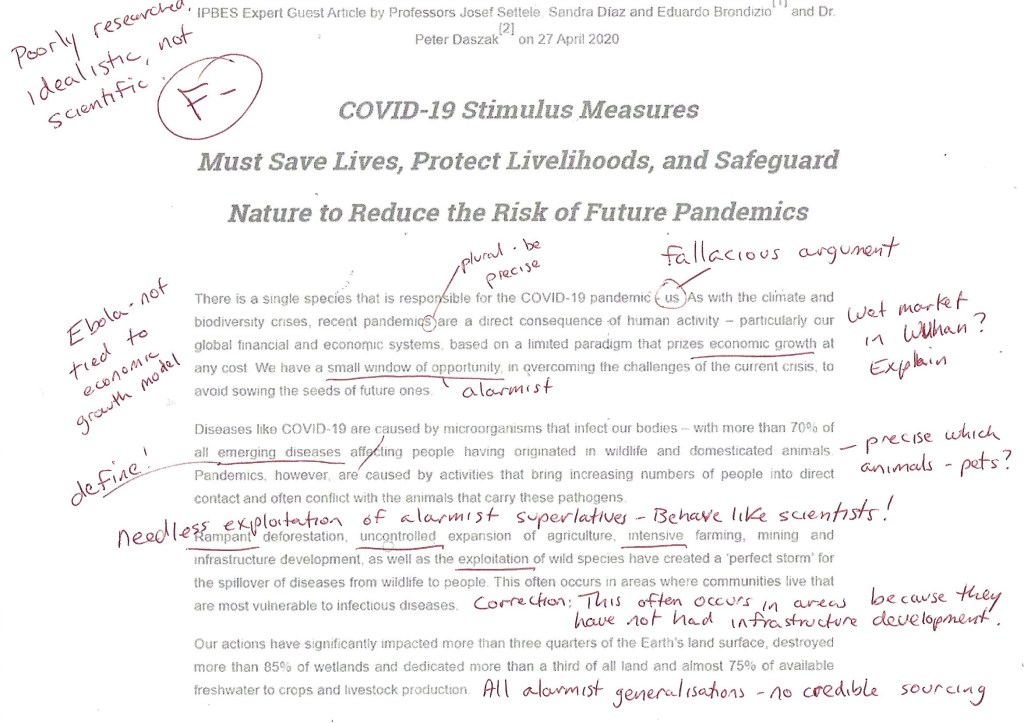 Poorly researched,
idealistic, not
scientific.
F-
IPBES Expert Guest Article by Professors Josef Settele, Sandra Díaz and Eduardo Brondizio[1] and Dr.
Peter Daszak[2] on 27 April 2020
COVID-19 Stimulus Measures
Must Save Lives, Protect Livelihoods, and Safeguard
Nature to Reduce the Risk of Future Pandemics
plural - be
precise
fallacious argument
Ebola - not
tied to
economic
growth model
There is a single species that is responsible for the COVID-19 pandemic - us. As with the climate and
biodiversity crises, recent pandemics are a direct consequence of human activity – particularly our
global financial and economic systems, based on a limited paradigm that prizes economic growth at
any cost. We have a small window of opportunity, in overcoming the challenges of the current crisis, to
avoid sowing the seeds of future ones.
alarmist
Wet market
in Wuhan?
Explain
Diseases like COVID-19 are caused by microorganisms that infect our bodies – with more than 70% of
all emerging diseases affecting people having originated in wildlife and domesticated animals.
Pandemics, however, are caused by activities that bring increasing numbers of people into direct
contact and often conflict with the animals that carry these pathogens.
define!
- precise which
animals - pets?
Needless exploitation of alarmist superlatives - Behave like scientists!
Rampant deforestation, uncontrolled expansion of agriculture, intensive farming, mining and
infrastructure development, as well as the exploitation of wild species have created a 'perfect storm' for
the spillover of diseases from wildlife to people. This often occurs in areas where communities live that
are most vulnerable to infectious diseases.
Correction: This often occurs in areas because they
have not had infrastructure development.
Our actions have significantly impacted more than three quarters of the Earth's land surface, destroyed
more than 85% of wetlands and dedicated more than a third of all land and almost 75% of available
freshwater to crops and livestock production.
All alarmist generalisations - no credible sourcing